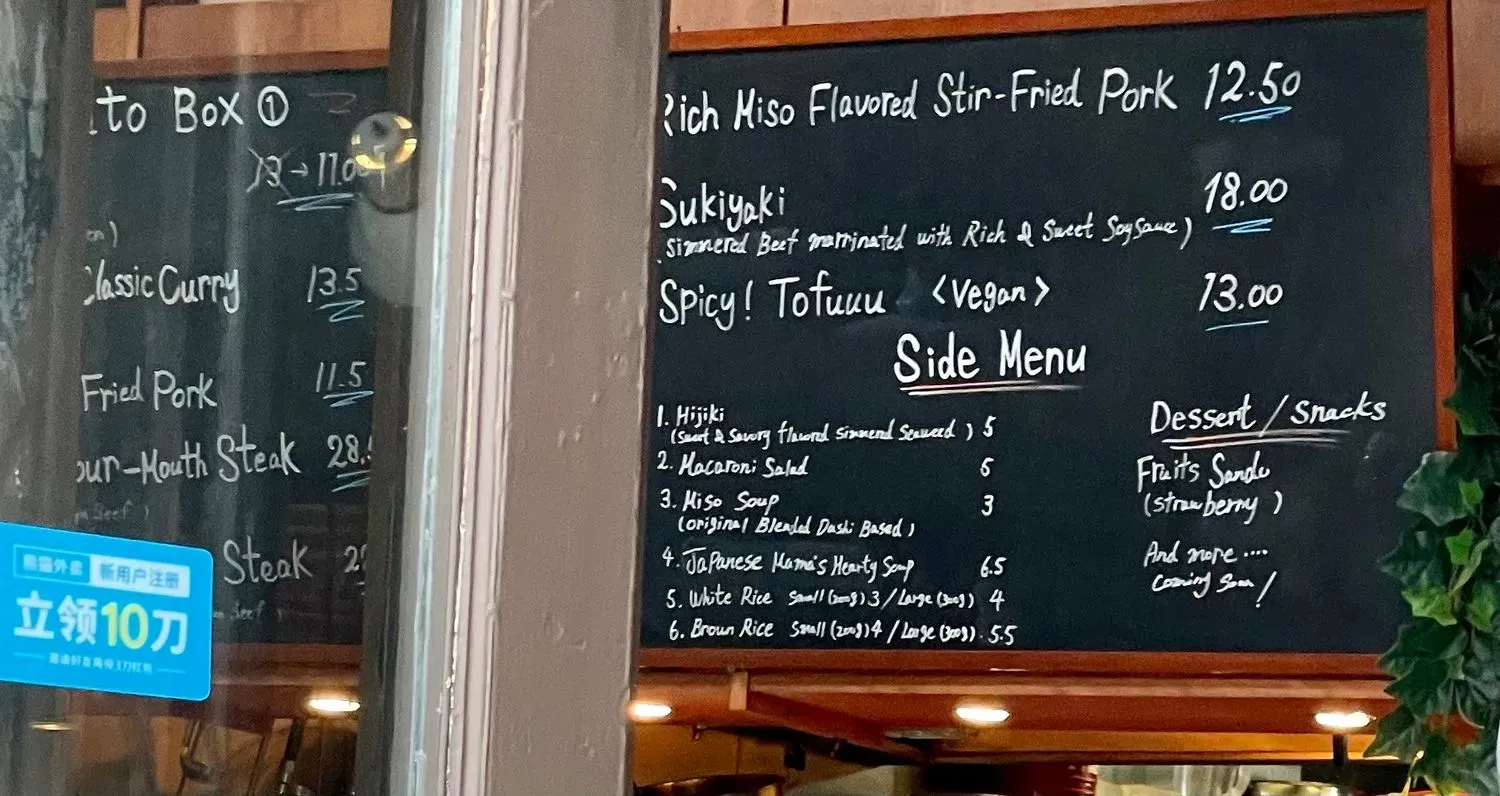 Box ①
13 → 11.00
Classic Curry 13.5
Fried Pork 11.5
our-Mouth Steak 28.
Steak
熊猫外卖 新用户注册
立领10刀
Rich Miso Flavored Stir-Fried Pork 12.50
Sukiyaki 18.00
(Simmered Beef marrinated with Rich & Sweet Soy Sauce)
Spicy! Tofuuu <Vegan> 13.00
Side Menu
1. Hijiki
(Sweet & Savory flavored Simmerd Seaweed) 5
2. Macaroni Salad 5
3. Miso Soup 3
(original Blended Dashi Based)
4. Japanese Mama's Hearty Soup 6.5
5. White Rice Small (200g) 3 / Large (300g) 4
6. Brown Rice Small (200g) 4 / Large (300g) 5.5
Dessert / Snacks
Fruits Sando
(strawberry)
And more ....
Coming Soon!